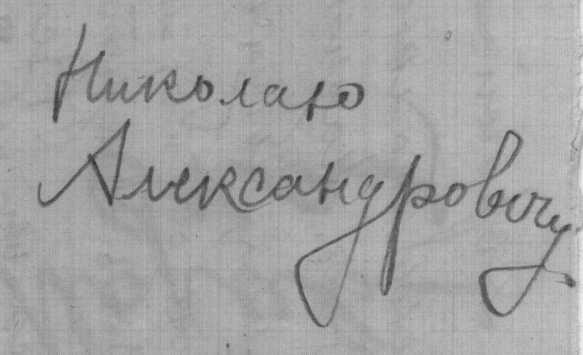 Николаю
Александровичу